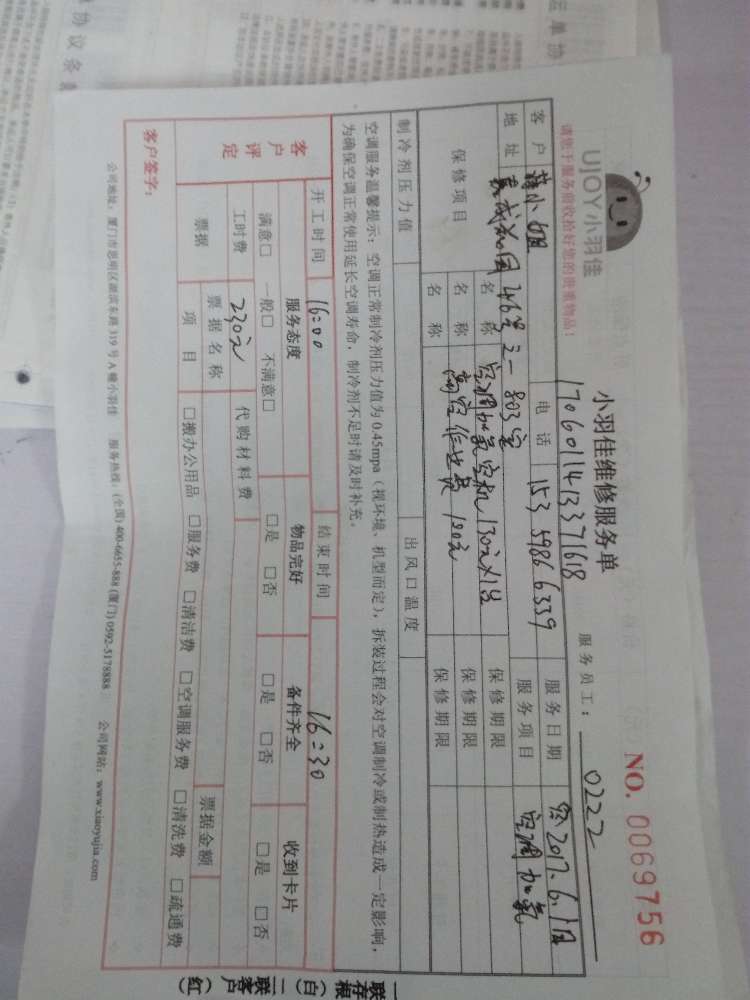 UJOY小羽佳
小羽佳维修服务单
NO. 0069756
请您于服务前收拾好您的贵重物品！
1706011413371618
服务员工：0222
客户 薛小姐 电话 153 5986 6339 服务日期 2017.6.1日
地址 246号2-803室 服务项目 空调加氟
保修项目 名称 空调加氟空机130元X1台 保修期限
名称 高空作业费 100元 保修期限
名称 保修期限
制冷剂压力值 出风口温度
空调服务温馨提示：空调正常制冷剂压力值为0.45mpa（视环境、机型而定），拆装过程会对空调制冷或制热造成一定影响，
为确保空调正常使用延长空调寿命，制冷剂不足时请及时补充。
开工时间 16:00 结束时间 16:30
客户评定 服务态度 物品完好 备件齐全 收到卡片
满意□ 一般□ 不满意□ □是 □否 □是 □否 □是 □否
工时费 230元 代购材料费
票据 票据名称 票据金额
项目 □搬办公用品 □服务费 □清洁费 □空调服务费 □清洗费 □疏通费
客户签字：
公司地址：厦门市思明区湖滨东路319号A幢小羽佳 服务热线：(全国) 400-6655-888 (厦门) 0592-5178888 公司网站：www.xiaoyujia.com
一联存根（白）二联客户（红）
协议条
运单协